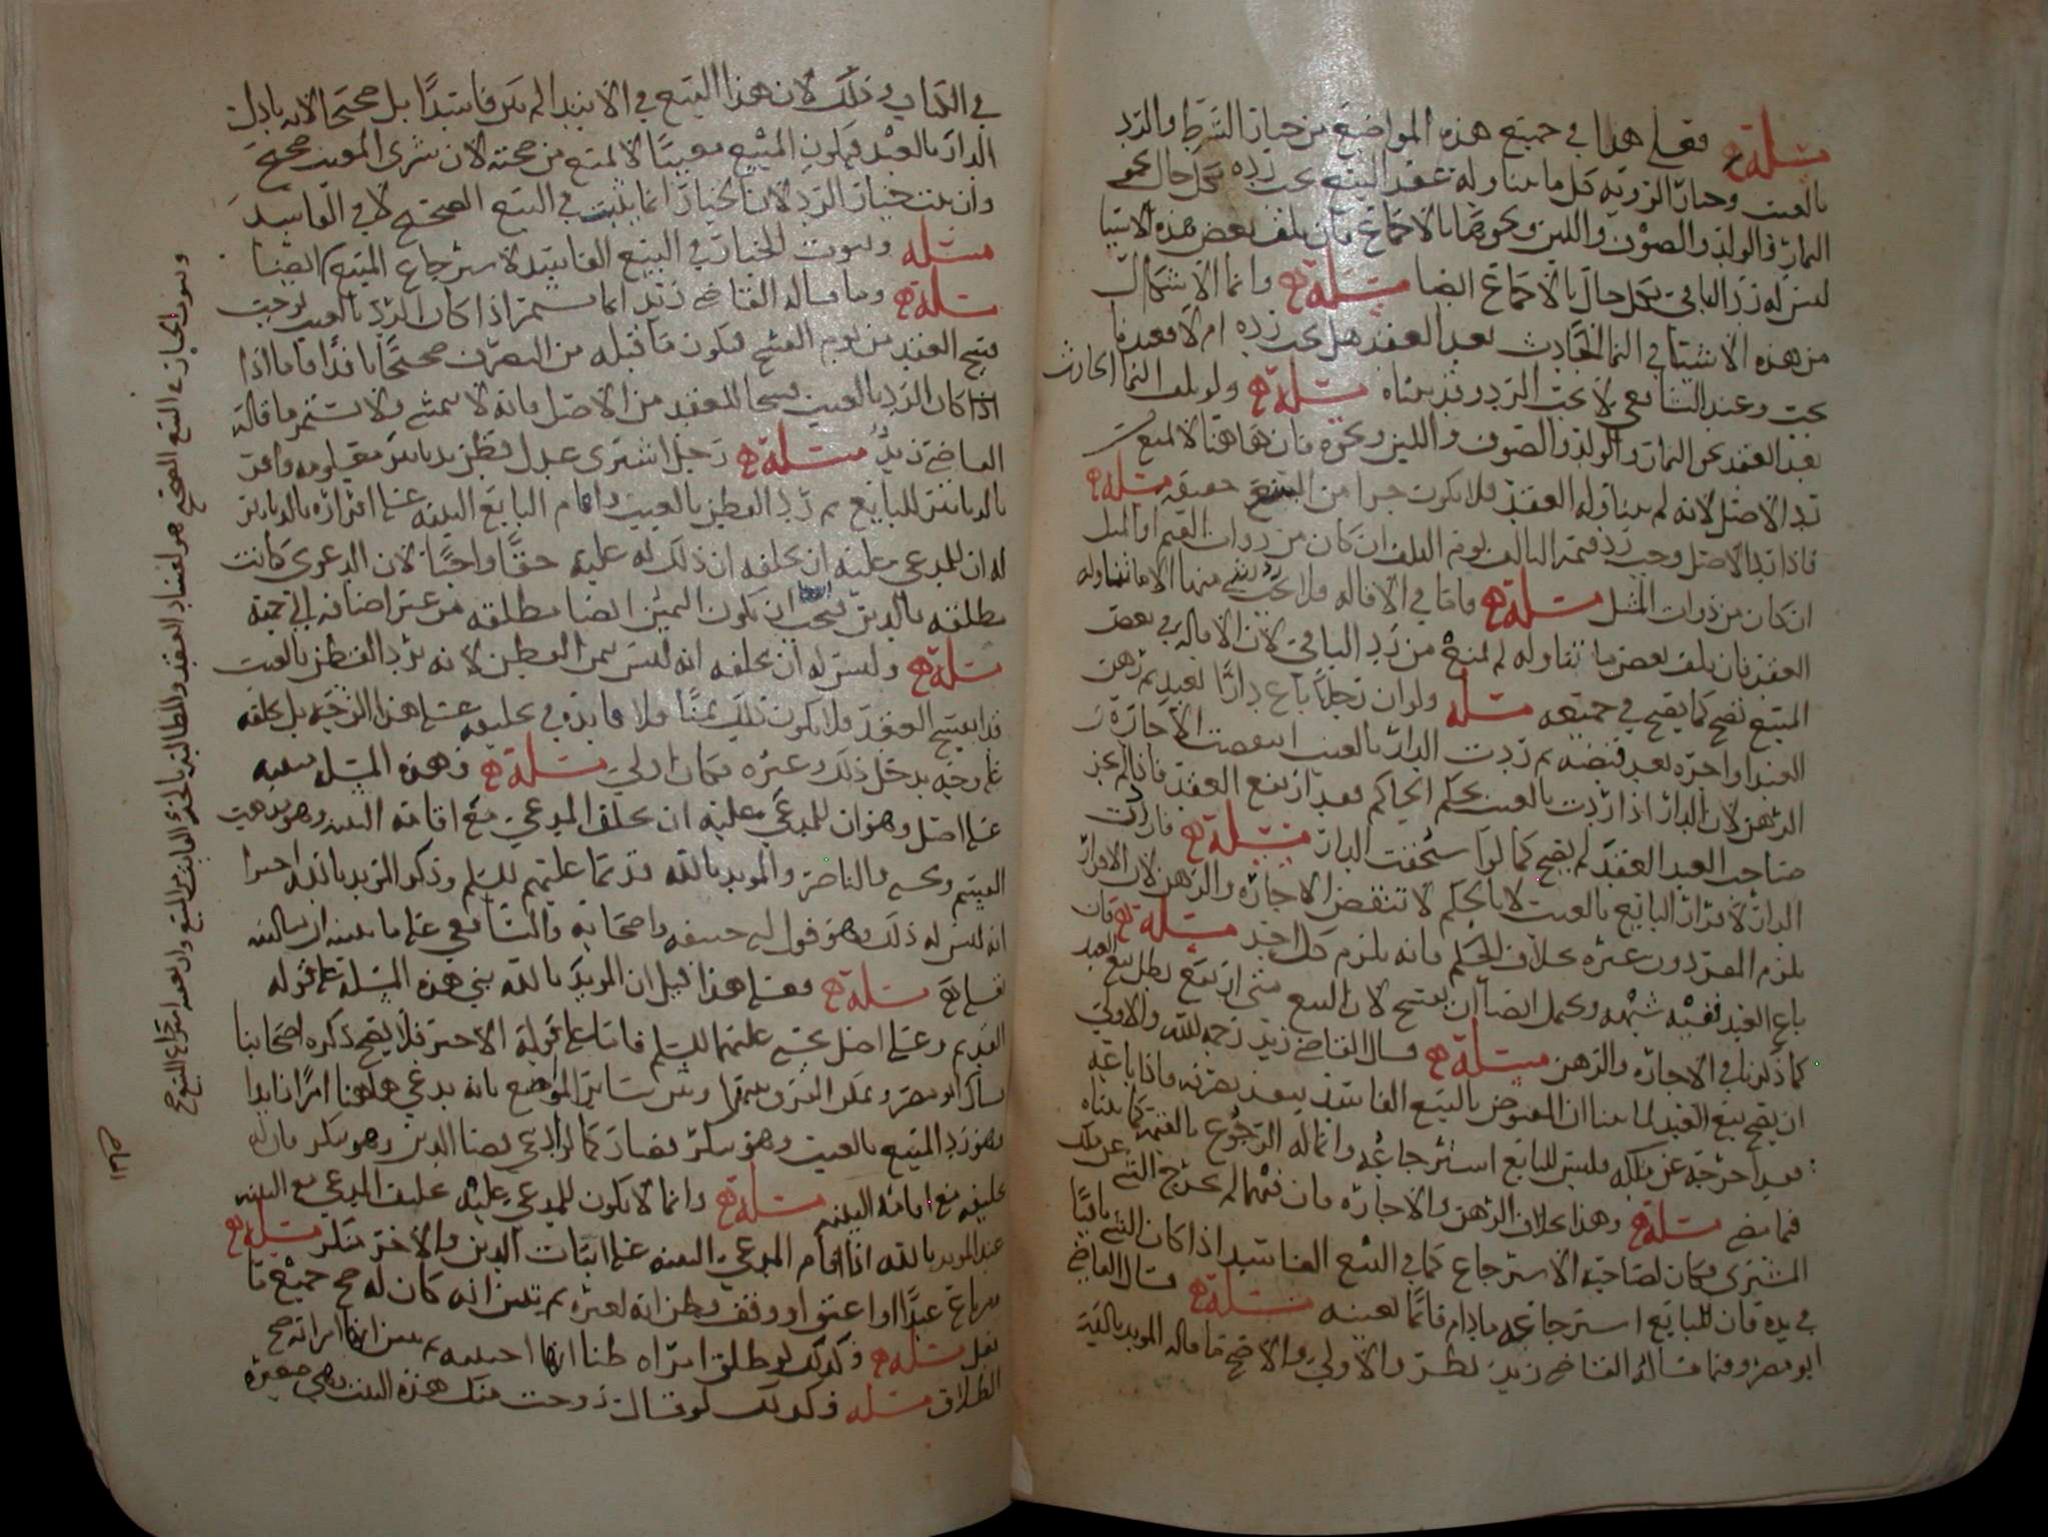 مسئلة فعلى هذا في جميع هذه المواضع من خيار الشرط والرد
بالعيب وخيار الروية كل ما يتناوله عقد البيع يجب رده بكل حال نحو
الثمار والولد والصوف واللبن ونحوها بالاجماع فان تلف بعض هذه الاشيا
ليس له رد الباقي بكل حال بالاجماع ايضا مسئلة وانما الاشكال
من هذه الاشيا في النما الحادث بعد العقد هل يجب رده ام لا فعندنا
يجب وعند الشافعي لا يجب الرد وقد بيناه مسئلة ولو تلف النما الحادث
بعد العقد نحو الثمار والولد والصوف واللبن ونحوه فان هاهنا لا يمنع
رد الاصل لانه لم يتناوله العقد فلا يكون جزا من المبيع حقيقة مسئلة
فاذا رد الاصل وجب رد قيمة التالف يوم التلف ان كان من ذوات القيم او المثل
ان كان من ذوات المثل مسئلة واما في الاقالة فلا يجب رد شي منها الا ما تناوله
العقد فان تلف بعض ما تناوله لم يمنع من رد الباقي لان الاقالة في بعض
المبيع تصح كما يصح في جميعه مسئلة ولو ان رجلا باع دارا بعبد ثم رهن
العبد او اجره بعد قبضه ثم ردت الدار بالعيب انتقضت الاجارة و
الرهن لان الدار اذا ردت بالعيب بحكم الحاكم فقد ارتفع العقد فاذا لم يجز
صاحب العبد العقد لم يصح كما لو استحقت الدار مسئلة فان ردت
الدار لاقرار البايع بالعيب لا بالحكم لا تنتقض الاجارة والرهن لان الاقرار
يلزم المقر دون غيره بخلاف الحكم فانه يلزم كل احد مسئلة فان
باع العبد ففيه شبهة ويحتمل ايضا ان يفسخ لان البيع متى ارتفع بطل بيع العبد
كما ذكرنا في الاجارة والرهن مسئلة قال القاضي زيد رحمه الله والاولى
ان يصح بيع العبد لما بينا ان المقبوض بالبيع الفاسد ينفذ تصرفه فاذا باعه
فقد اخرجه عن ملكه فليس للبايع استرجاعه وانما له الرجوع بالقيمة كما بيناه
فيما مضى مسئلة وهذا بخلاف الرهن والاجارة فان فيهما لم يخرج الشي عن ملك
المشتري فكان لصاحبه الاسترجاع كما في البيع الفاسد اذا كان الشي باقيا
في يده فان للبايع استرجاعه ما دام قائما بعينه مسئلة قال القاضي
ابو مضر وفيما قاله القاضي زيد نظر والاولى والاصح ما قاله المويد بالله
في الكتاب وذلك لان هذا البيع في الابتدا لم يكن فاسدا بل صحيحا لانه بادل
الدار بالعبد فيكون المبيع معيبا لا يمنع من صحته لان شرى المعيب صحيح
وان ثبت خيار الرد لان الخيار انما يثبت في البيع الصحيح لا في الفاسد
مسئلة وثبوت الخيار في البيع الفاسد لاسترجاع المبيع ايضا
مسئلة وما قاله القاضي زيد انما يستمر اذا كان الرد بالعيب يوجب
فسخ العقد من يوم الفسخ فيكون ما قبله من التصرف صحيحا نافذا فاما اذا
اذا كان الرد بالعيب فسخا للعقد من الاصل فانه لا يتمشى ولا يستمر ما قاله
القاضي زيد مسئلة رجل اشترى عدل قطن بدنانير معلومه واقر
بالدنانير للبايع ثم رد القطن بالعيب واقام البايع البينه على اقراره بالدنانير
له ان للمدعى عليه ان يحلفه ان ذلك له عليه حقا واجبا لان الدعوى كانت
مطلقه بالدين فيجب ان يكون اليمين ايضا مطلقه من غير اضافه الى جهة
مسئلة وليس له ان يحلفه انه ليس ثمن القطن لانه برد القطن بالعيب
قد انفسخ العقد فلا يكون ذلك ثمنا فلا فايدة في تحليفه على هذا الوجه بل يحلفه
على وجه يدخل ذلك وغيره فكان اولى مسئلة وهذه المسئلة مبنيه
على اصل وهو ان للمدعى عليه ان يحلف المدعي مع اقامة البينه وهو مذهب
القسم ويحيى والناصر والمويد بالله قدما عليهم السلم وذكر المويد بالله اخيرا
انه ليس له ذلك وهو قول ابي حنيفه واصحابه والشافعي على ما نبينه ان شا الله
تعالى مسئلة فعلى هذا قيل ان المويد بالله بنى هذه المسئلة على قوله
القديم وعلى اصل يحيى عليهما السلم فاما على قوله الاخير فلا يصح ذكره اصحابنا
قال ابو مضر ويمكن الفرق بينها وبين ساير المواضع بانه يدعي هاهنا امرا زايدا
وهو رد المبيع بالعيب وهو ينكر فصار كما لو ادعى قضا الدين وهو ينكر فان له
تحليفه مع اقامة البينه مسئلة وانما لا يكون للمدعى عليه تحليف المدعي مع البينه
عند المويد بالله اذا اقام المدعي البينه على اثبات الدين والاخر منكر مسئلة
من باع عبدا او اعتق او وقف فظن انه لغيره ثم تبين انه كان له صح جميع ما
فعل مسئلة وكذلك لو طلق امراه ظنا انها اجنبيه ثم تبين انها امراته صح
الطلاق مسئله وكذلك لو قال زوجت منك هذه البنت وهي صغيرة
وثبوت الخيار في البيع الصحيح هو لفساد العقد والمطالبة بالجزء الفايت من المبيع وان لعله استرجاع المبيع صح